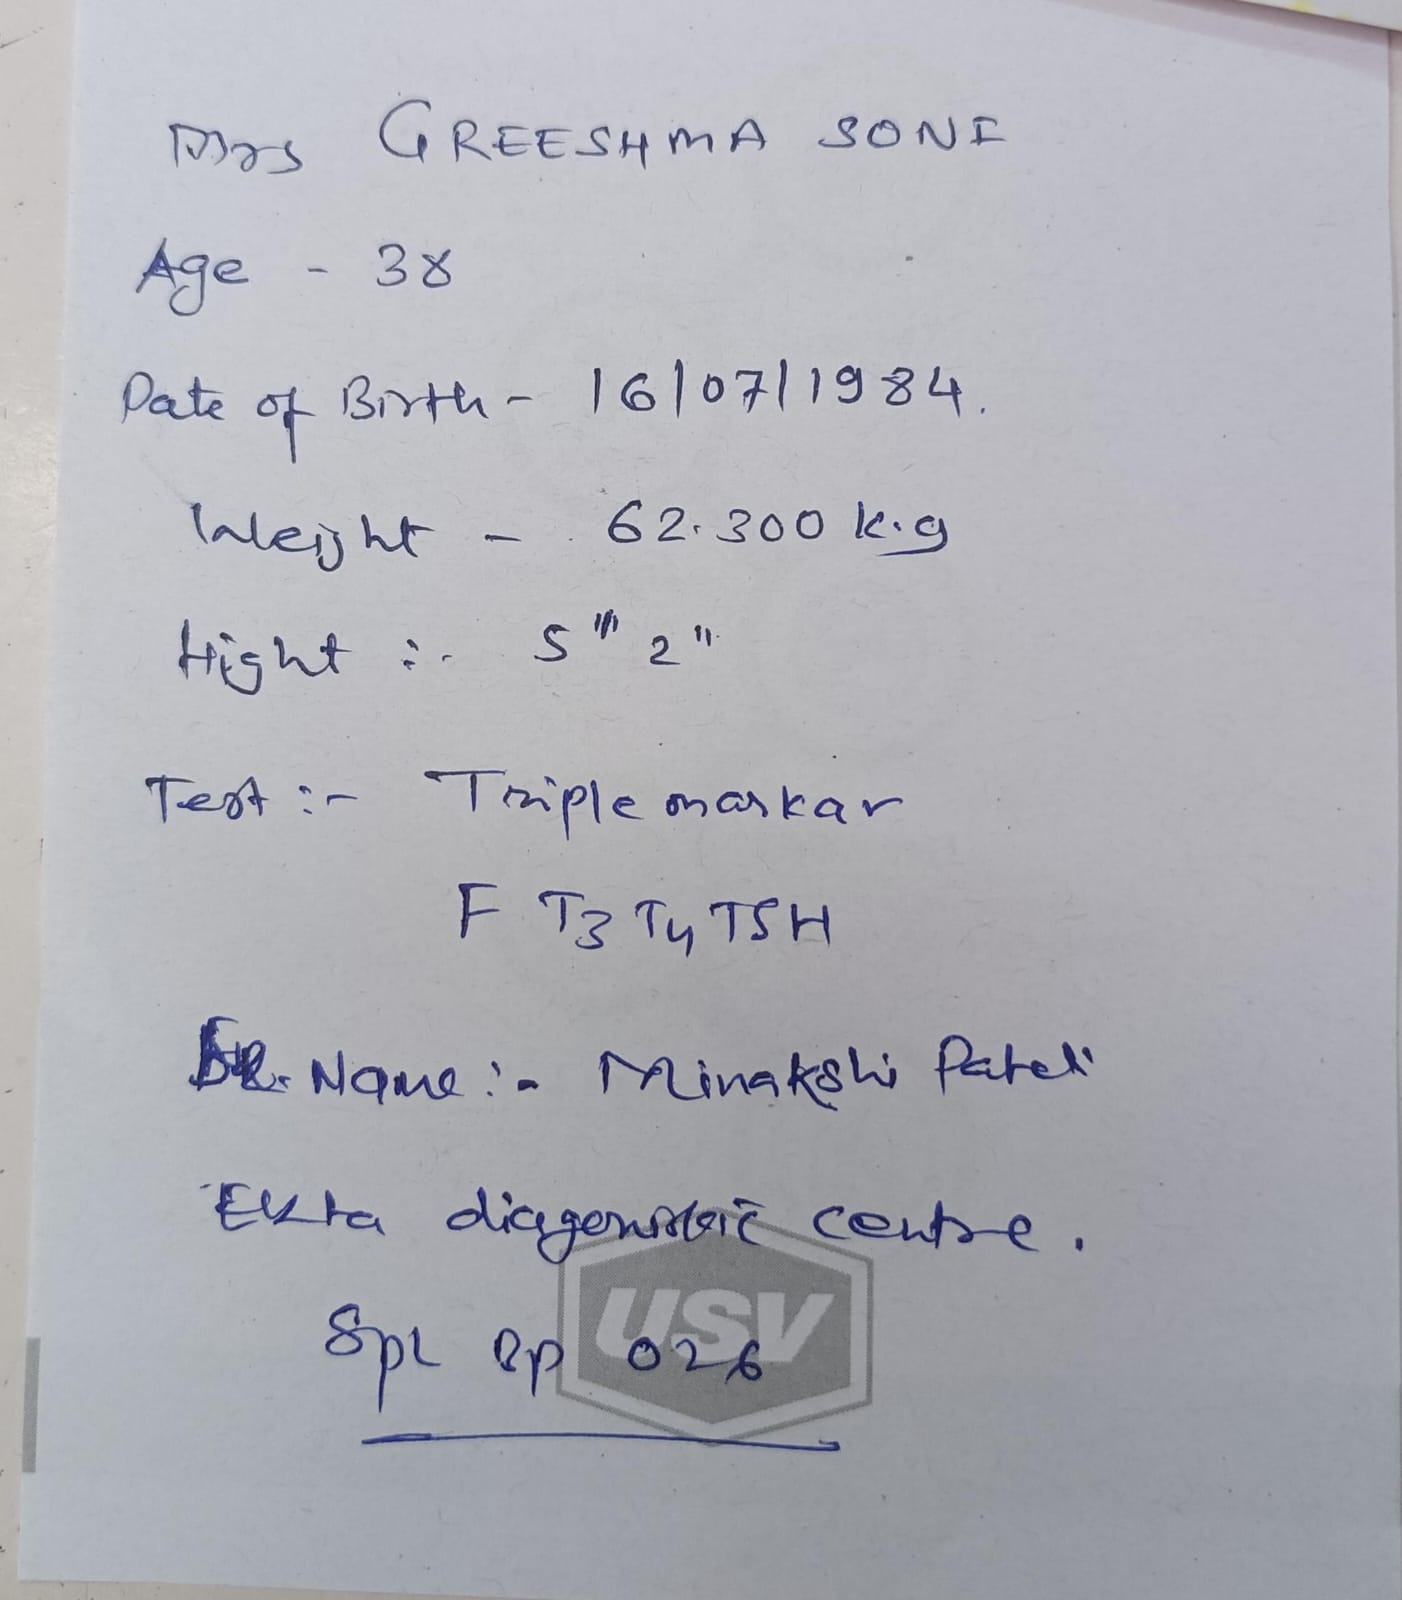 Mrs GREESHMA SONI
Age - 38
Date of Birth - 16/07/1984.
Weight - 62.300 k.g
Hight :- 5''' 2"
Test :- Triple markar
F T3 T4 TSH
DR. Name :- Minakshi Patel
Ekta diagonostic centre.
USV
Spl Bp 026